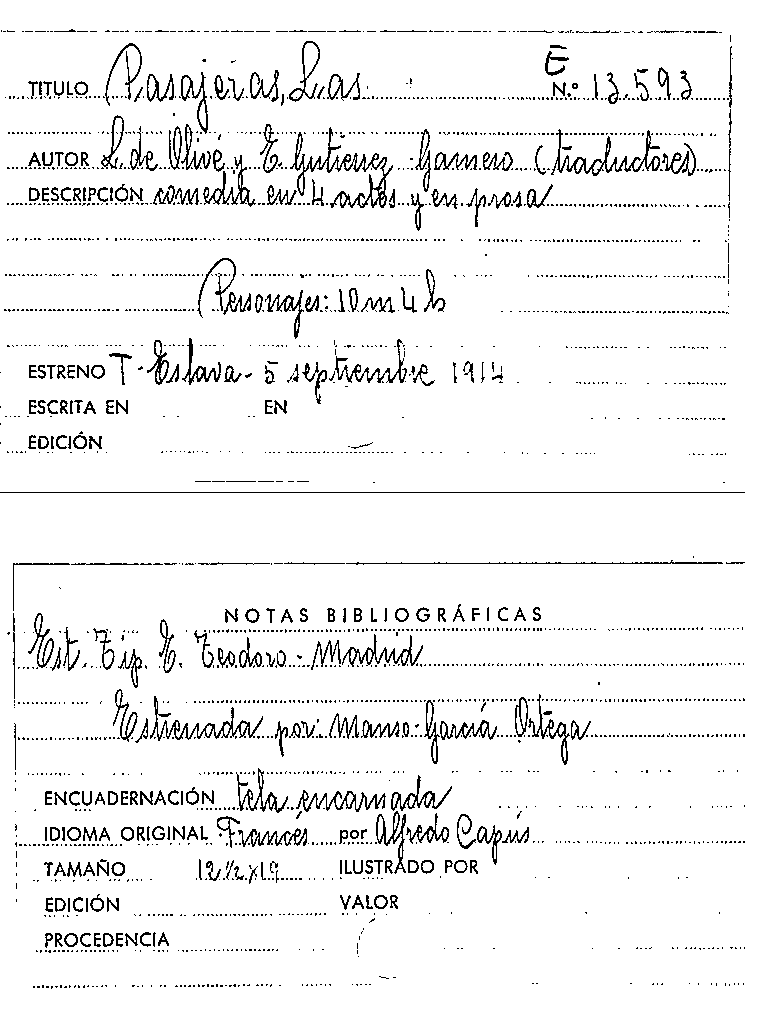 E
TITULO Pasajeras, Las. N.º 13.593
AUTOR L. de Olivé y E. Gutierrez-Gamero (traductores)
DESCRIPCIÓN comedia en 4 actos y en prosa
Personajes: 10 m 4 h
ESTRENO T. Eslava - 5 septiembre 1914
ESCRITA EN EN
EDICIÓN
NOTAS BIBLIOGRÁFICAS
Est. Tip. E. Teodoro - Madrid
Estrenada por: Manso-García Ortega
ENCUADERNACIÓN tela encarnada
IDIOMA ORIGINAL Francés por Alfredo Capús
TAMAÑO 12 1/2 x 19 ILUSTRADO POR
EDICIÓN VALOR
PROCEDENCIA